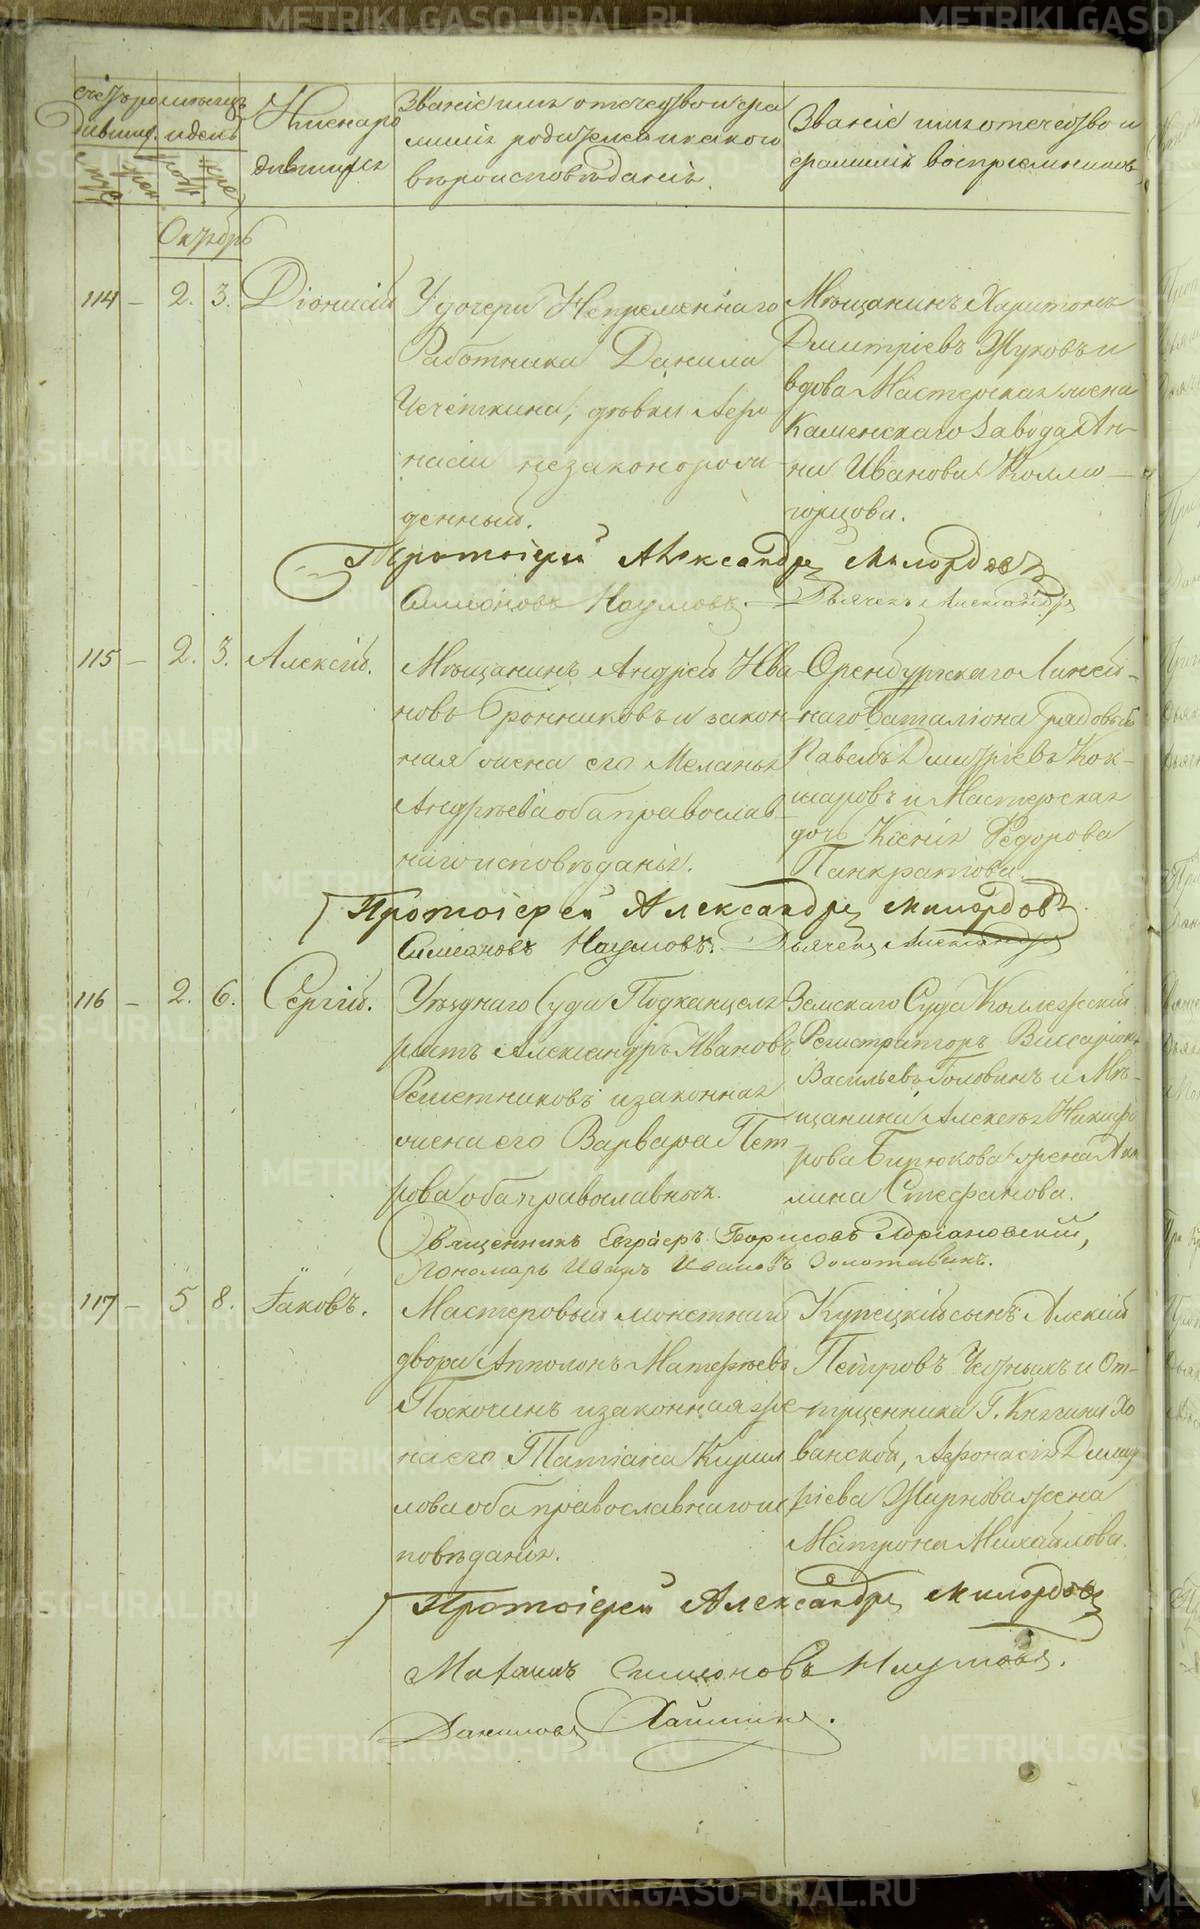 Счетъ родившихъ
Званіе имя отечество и фа
Имена ро
милія родителей и какого
Званіе имя отечество и
дившихъ
вѣроисповѣданія.
фамилія воспріемниковъ
Октябрь
114 — 2. 3. Діонисій
У дочери Непременнаго
Работника Данила
Чечеткина, дѣвки Афо
насіи незаконорож
денный.
Мѣщанинъ Харитонъ
Дмитріевъ Жуковъ и
вдова Мастерская жена
Каменскаго Завода Ан-
на Иванова Колмо-
горцова.
Протоіерей Александръ Милордовъ
Симеоновъ Наумовъ. Дьячекъ Александръ
115 — 2. 3. Алексій.
Мѣщанинъ Андрей Ива
новъ Бронниковъ и закон
ная жена его Меланья
Андрѣева оба православ
наго исповѣданья.
Оренбургскаго Линей-
наго Баталіона Рядовый
Павелъ Дмитріевъ Кок-
шаровъ и Мастерская
дочь Ксенія Федорова
Панкратова.
Протоіерей Александръ Милордовъ
Симеоновъ Наумовъ. Дьячекъ Александръ
116 — 2. 6. Сергій.
Уѣзднаго Суда Подканцеля
ристъ Александръ Ивановъ
Решетниковъ и законная
жена его Варвара Пет
рова оба православныя.
Земскаго Суда Коллежскій
Регистраторъ Виссаріонъ
Васильевъ Головинъ и Мѣ-
щанина Алексея Никифо
рова Бирюкова жена Аки
лина Стефанова.
Священникъ Евграфъ Борисовъ Флоріановскій,
Пономарь Иванъ Ивановъ Золотавинъ.
117 — 5 8. Іаковъ.
Мастеровый монетнаго
двора Апполонъ Матфѣевъ
Поскочинъ и законная же
на его Татіана Кирил
лова оба православнаго ис
повѣданія.
Купецкій сынъ Алексій
Петровъ Черныхъ и От-
пущенника Г. Княгини Хо
ванской, Афонасія Дмит
ріева Жирнова жена
Матрона Михайлова.
Протоіерей Александръ Милордовъ
Симеоновъ Наумовъ.
Даниловъ